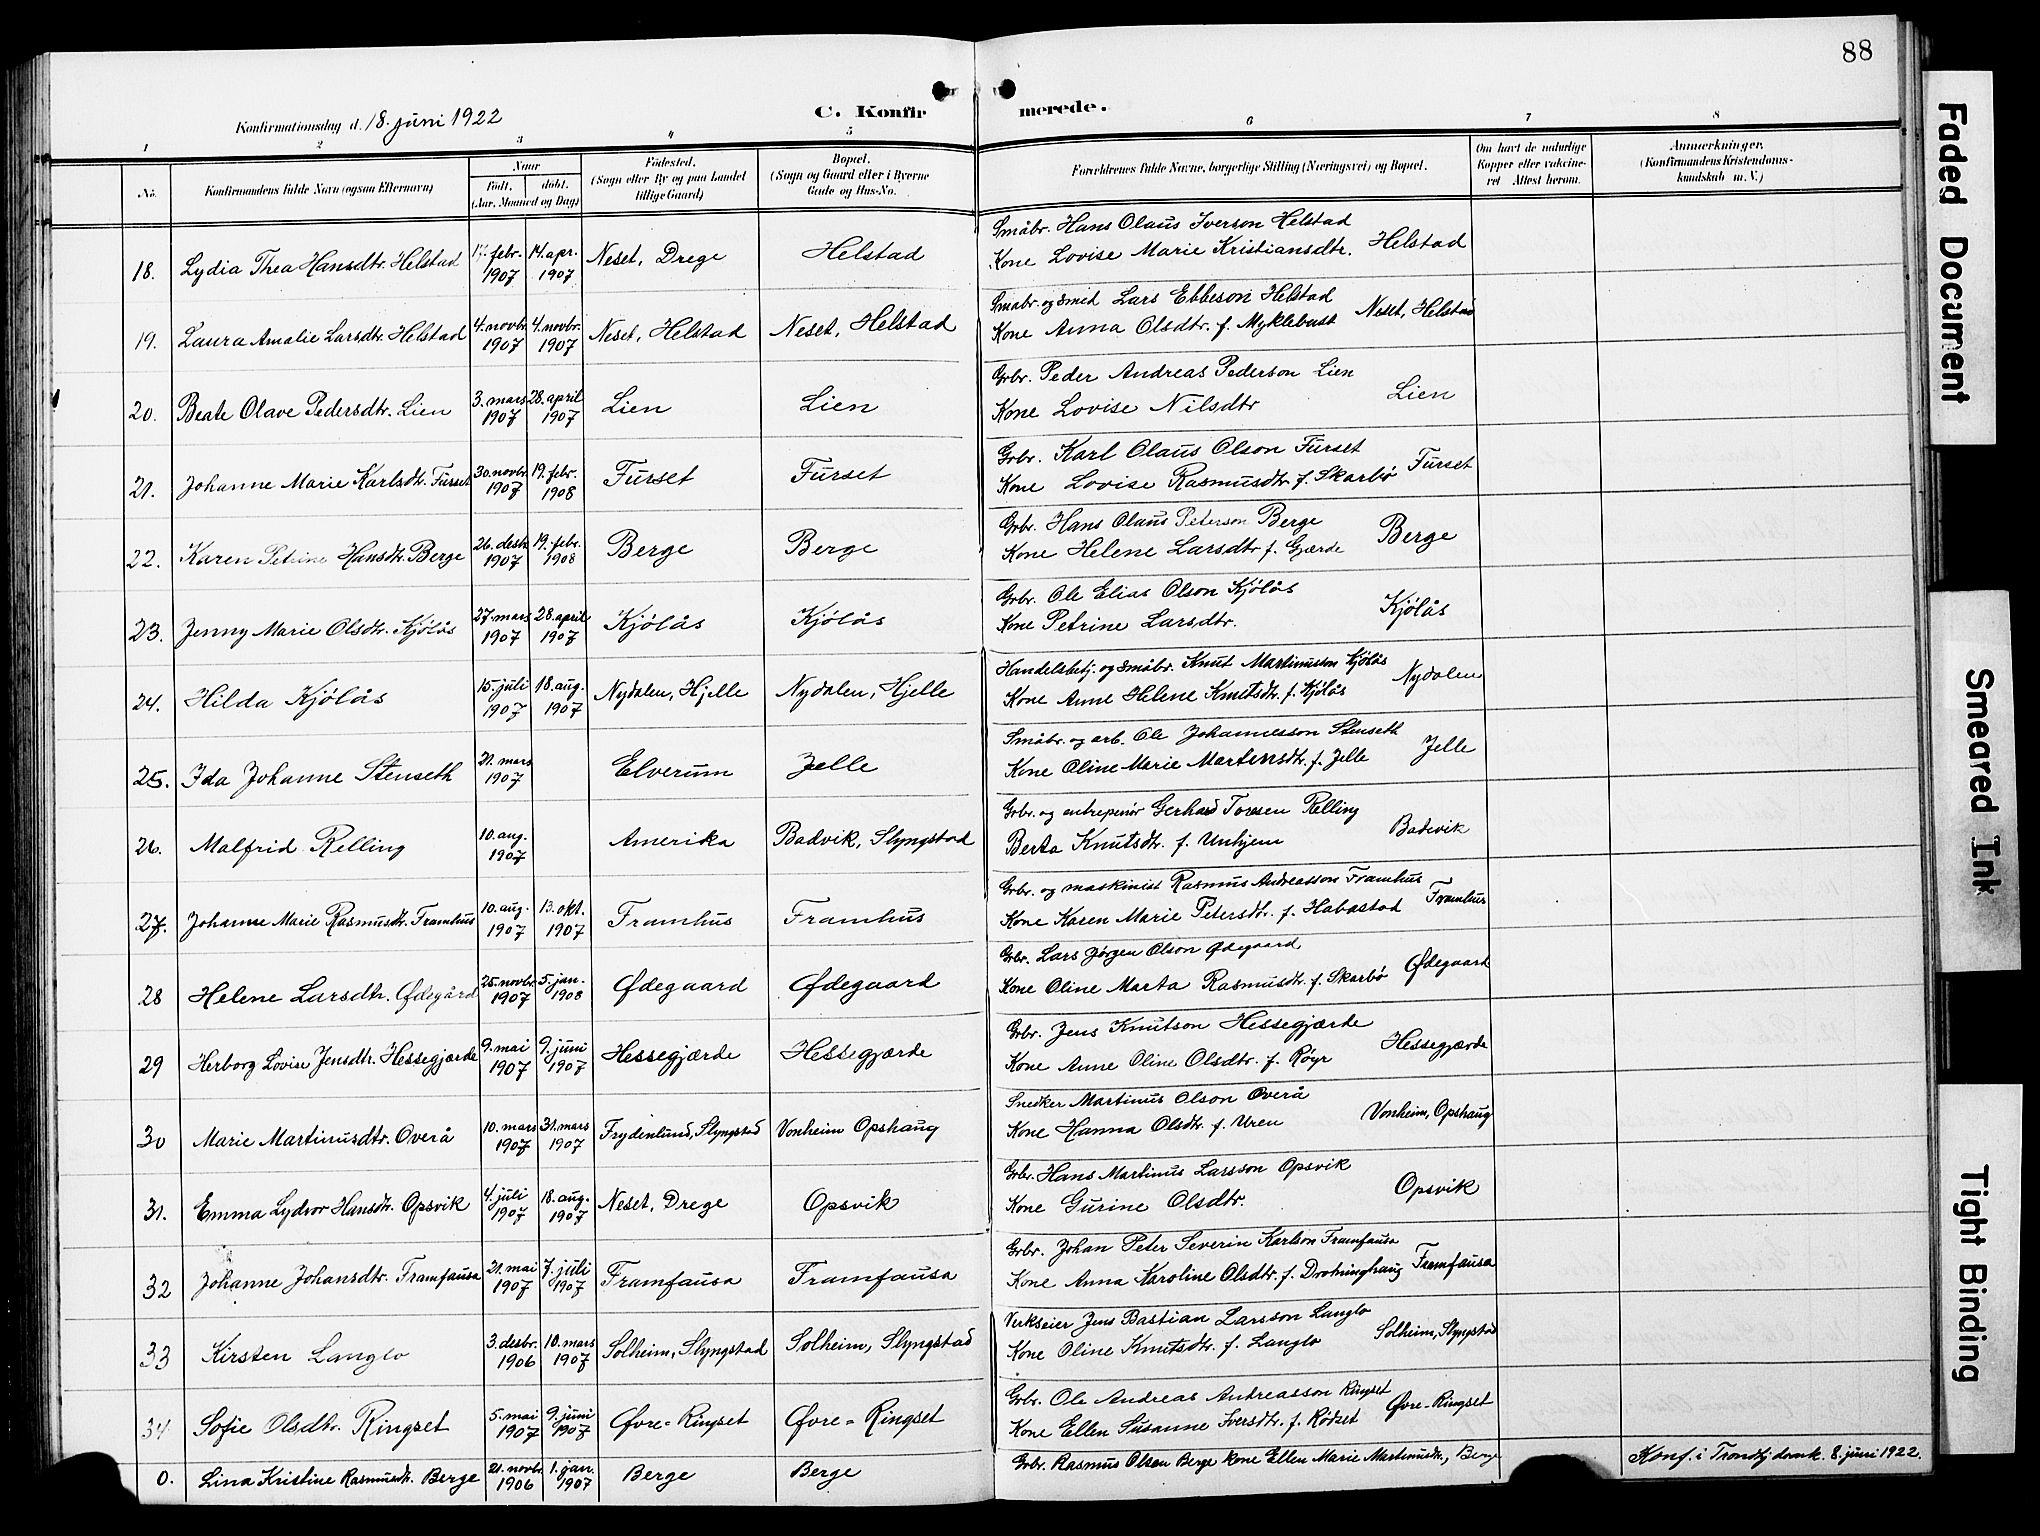 88
Konfirmationsdag d. 18. juni 1922
C. Konfirmerede.
1 2 3 4 5 6 7 8
No. Konfirmandens fulde Navn (ogsaa Efternavn)
Naar
født. døbt.
(Aar, Maaned og Dag)
Fødested.
(Sogn eller By og paa Landet
tillige Gaard)
Bopæl.
(Sogn og Gaard eller i Byerne
Gade og Hus-No.
Forældrenes fulde Navne, borgerlige Stilling (Næringsvei) og Bopæl.
Om havt de naturlige
Kopper eller vakcine-
ret Attest herom.
Anmærkninger.
(Konfirmandens Kristendoms-
kundskab m. V.)
18. Lydia Thea Hansdtr. Helstad febr. 1907 14. apr. 1907 Neset, Drege Helstad
Småbr. Hans Olaus Iverson Helstad
Kone Lovise Marie Kristiansdtr. Helstad
19. Laura Amalie Larsdtr. Helstad 4. novbr. 1907 4. novbr. 1907 Neset, Helstad Neset, Helstad
Småbr. og smed Lars Ebbeson Helstad
Kone Anna Olsdtr. f. Myklebust Neset, Helstad
20. Beate Olave Pedersdtr. Lien 3. mars 1907 28. april 1907 Lien Lien
Grbr. Peder Andreas Pederson Lien
Kone Lovise Nilsdtr Lien
21. Johanne Marie Karlsdtr. Furset 30. novbr. 1907 19. febr. 1908 Furset Furset
Grbr. Karl Olaus Olson Furset
Kone Lovise Rasmusdtr. f. Skarbø Furset
22. Karen Petrine Hansdtr. Berge 26. desbr. 1907 19. febr. 1908 Berge Berge
Grbr. Hans Olaus Peterson Berge
Kone Helene Larsdtr f. Gjærde Berge
23. Jenny Marie Olsdtr. Kjölås 27. mars 1907 28. april 1907 Kjölås Kjölås
Grbr. Ole Elias Olson Kjölås
Kone Petrine Larsdtr. Kjölås
24. Hilda Kjölås 15. juli 1907 18. aug. 1907 Nydalen, Hjelle Nydalen, Hjelle
Handelsbetj. og småbr. Knut Martinusson Kjölås
Kone Anne Helene Knutsdtr. f. Kjölås Nydalen
25. Ida Johanne Stenseth 21. mars 1907 Elverum Jelle
Småbr. og arb. Ole Johannesson Stenseth
Kone Oline Marie Martensdtr. f. Jelle Jelle
26. Malfrid Relling 10. aug. 1907 Amerika Badvik, Slyngstad
Grbr. og entrepenør Gerhard Toresen Relling
Berta Knutsdtr. f. Unhjem Badevik
27. Johanne Marie Rasmusdtr. Framhus 10. aug. 1907 13. okt. 1907 Framhus Framhus
Grbr. og maskinist Rasmus Andreasson Framhus
Kone Karen Marie Petersdtr. f. Habostad Framhus
28 Helene Larsdtr. Ødegård 25. novbr. 1907 5. jan. 1908 Ødegaard Ødegaard
Grbr. Lars Jørgen Olson Ødegaard
Kone Oline Marta Rasmusdtr. f. Skarbø Ødegaard
29 Herborg Lovise Jensdtr. Hessegjærde 9. mai 1907 9. juni 1907 Hessegjærde Hessegjærde
Grbr. Jens Knutson Hessegjærde
Kone Anne Oline Olsdtr. f. Røyr Hessegjærde
30 Marie Martinusdtr. Overå 10. mars 1907 31. mars 1907 Frydenlund, Slyngstad Vonheim Opshaug
Snedker Martinus Olson Overå
Kone Hanna Olsdtr. f. Uren Vonheim, Opshaug
31. Emma Lydvor Hansdtr. Opsvik 4. juli 1907 18. aug. 1907 Neset, Drege Opsvik
Grbr. Hans Martinus Larsson Opsvik
Kone Gurine Olsdtr. Opsvik
32 Johanne Johansdtr. Framfausa 21. mai 1907 7. juli 1907 Framfausa Framfausa
Grbr. Johan Peter Severin Karlson Framfausa
Kone Anna Karoline Olsdtr. f. Drotninghaug Framfausa
33 Kirsten Langlo 3. desbr. 1906 10. mars 1907 Solheim, Slyngstad Solheim, Slyngstad
Verkseier Jens Bastian Larsson Langlo
Kone Oline Knutsdtr. f. Langlo Solheim, Slyngstad
34 Sofie Olsdtr. Ringset 5. mai 1907 9. juni 1907 Øvre-Ringset Øvre-Ringset
Grbr. Ole Andreas Andreasson Ringset
Kone Ellen Susanne Iversdtr. f. Rødset Øvre-Ringset
0. Lina Kristine Rasmusdtr. Berge 21. novbr. 1906 1. jan. 1907 Berge Berge
Grbr. Rasmus Olsen Berge kone Ellen Marie Martinusdtr., Berge Konf. i Trondhj. domk. 8. juni 1922.
Faded Document
Smeared Ink
Tight Binding